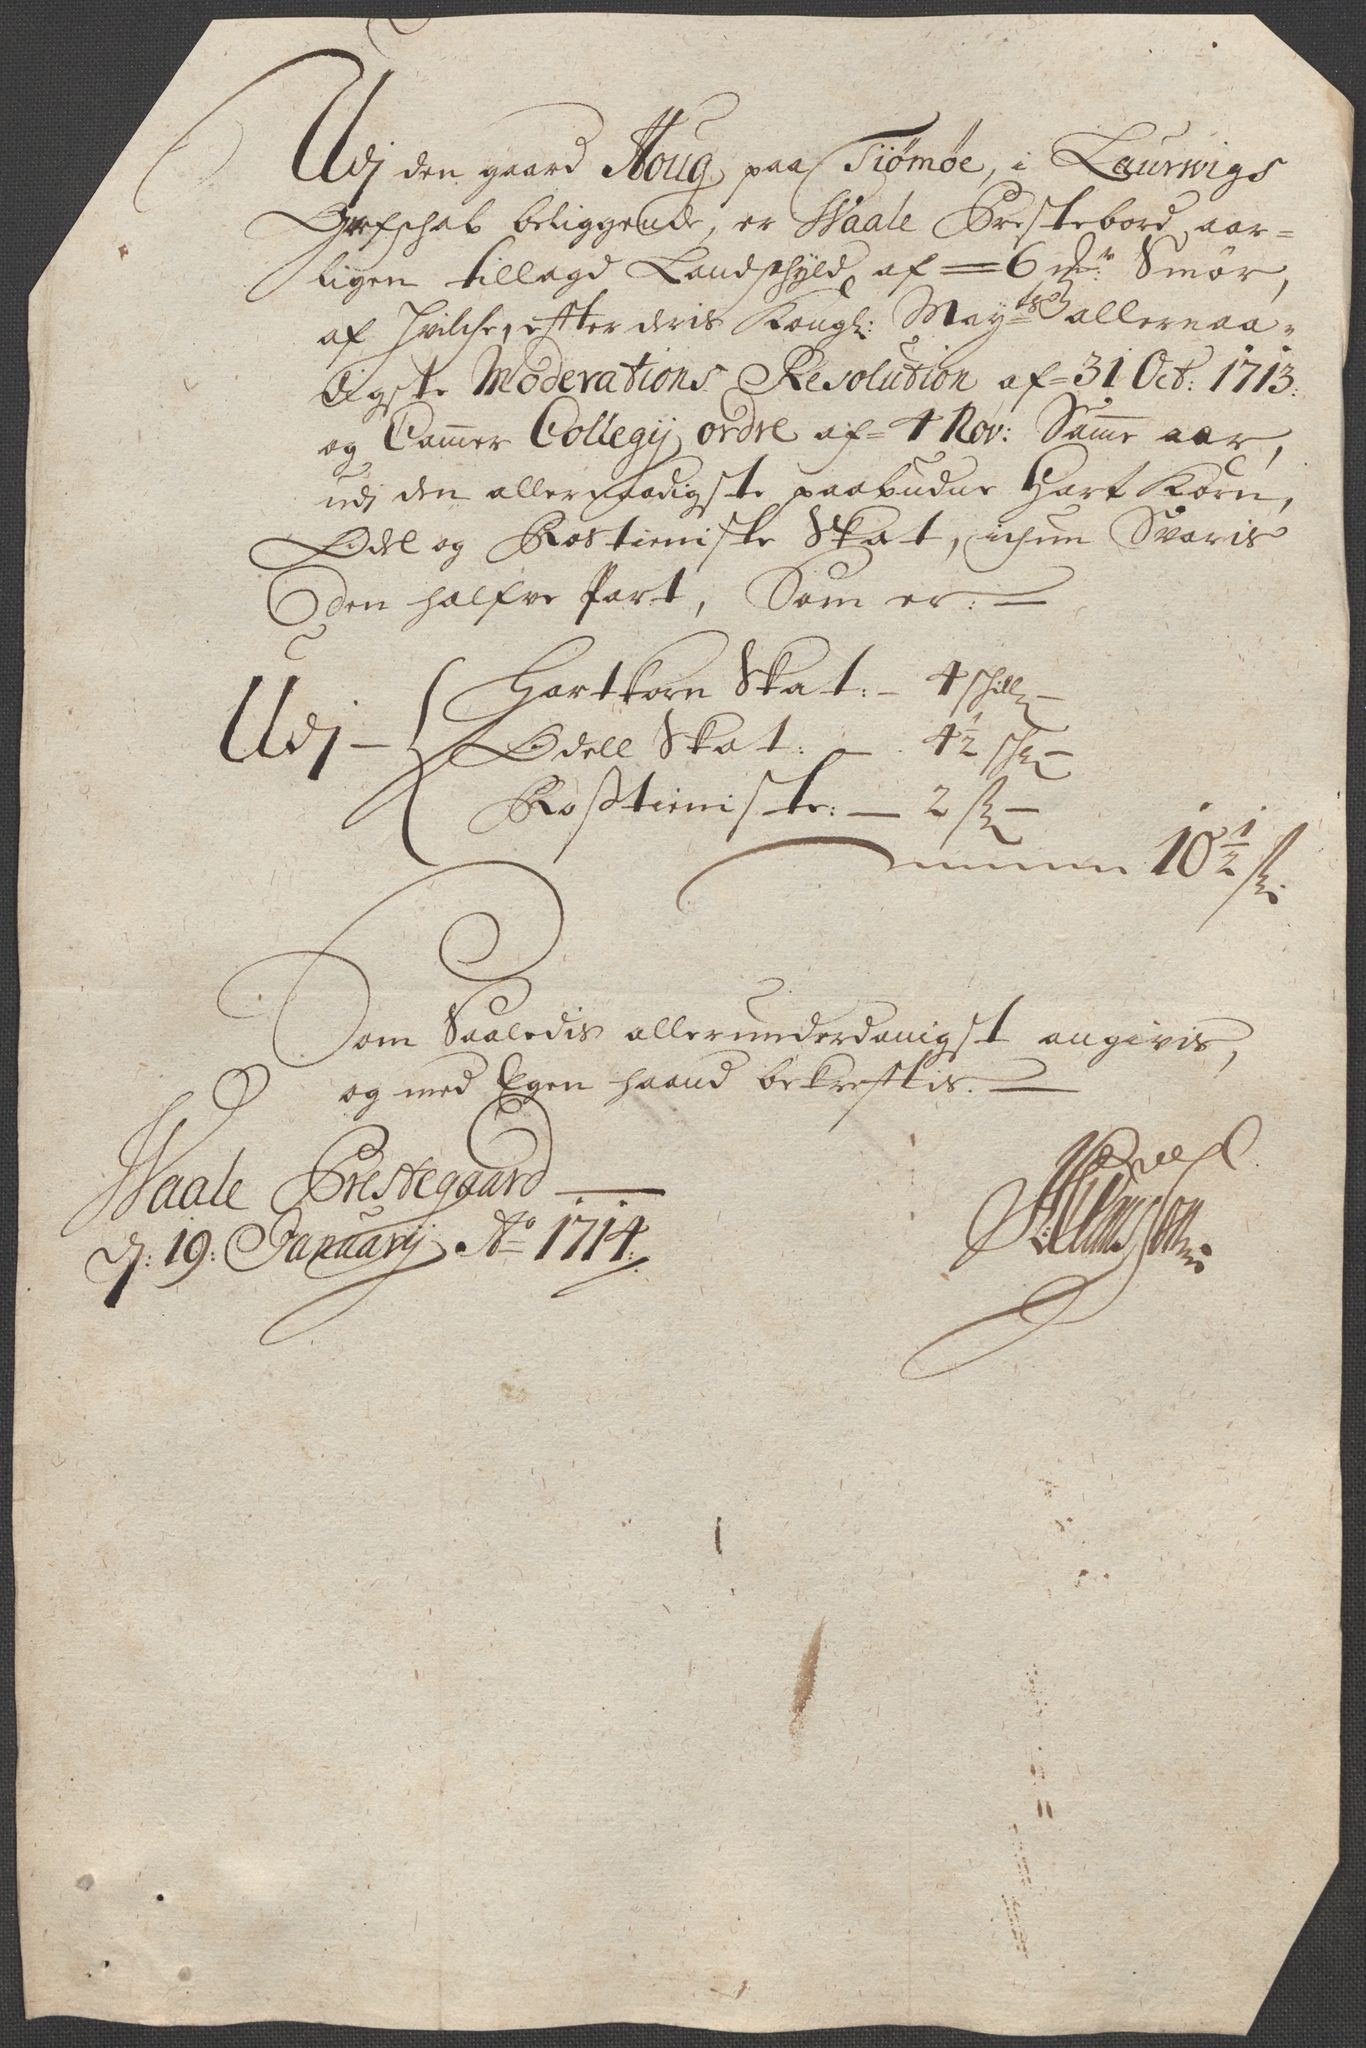 Udj den gaard Houg, paa Tiømøe, i Laurwigs
Grefschab beliggende, er Waale Prestebord aar=
ligen tillagd Landschyld af = 6 Smør,
af hvilche, efter deris Kongl: May:ts allernaa=
digste Moderations Resolution af = 31 Oct: 1713.
og Cammer Collegij ordre af = 4 Nov: Samme aar,
udj den allernaadigste paabudne Hart Korn,
Odel og Rostieniste Skat, ichun Svaris
den halfve Part, Som er: —
Udj — { Hartkorn Skat: — 4 schill —
Odell Skat: — 4 1/2 sch —
Rostieniste: — 2 sk —
10 1/2 sk.
Som Saaledis allerunderdanigst angivis,
og med Egen haand bekreftis. —
Waale Prestegaard —
d: 19: Januarij Ao 1714: